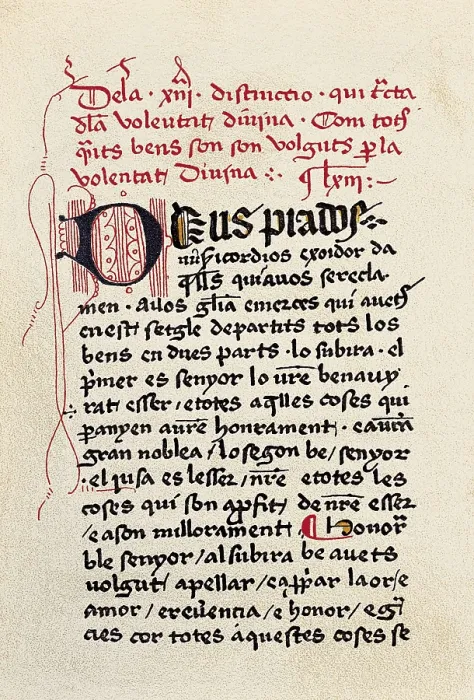 Dela · xiij · distinccio · qui tr̃cta
d̃la volentat diuina · Com tots
son son volguts ꝑ la
volentat Diuina ⁖ ¶ lxiij :–
DEus piados
misericordios exoidor da
q̃lls qui auos serecla-
men · Auos gl̃ia emerces qui auets
en est setgle departits tots los
bens en dues parts · lo subira · el
p̃mer es senyor lo ur̃e benauy
rat esser / etotes aq̃lles coses qui
ꝑanyen aur̃e honrament · eaur̃a
gran noblea / losegon be / senyor
· el jusa es lesser / nr̃e etotes les
coses qui son aꝓfit / de nr̃e esser
/ eason millorament · ¶ Honor̃
ble senyor / al subira be auets
volgut apellar / la or / e
amor / ereũencia / e honor / e gr̃
cies cor totes aquestes coses se